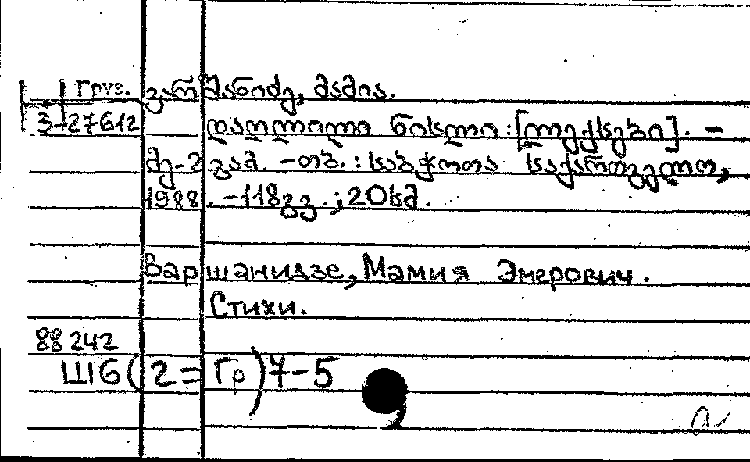 Груз. ვარშანიძე, მამია.
3-27612 დაღლილი ნისლი : [ლექსები]. -
მე-2 გამ. - თბ. : საბჭოთა საქართველო,
1988. - 118 გვ. ; 20 სმ.
Варшанидзе, Мамия Энверович.
Стихи.
88 242
Ш6(2=Гр)7-5